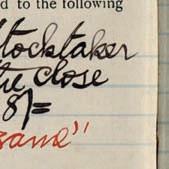 d to the following
Stocktaker
the close
8/=